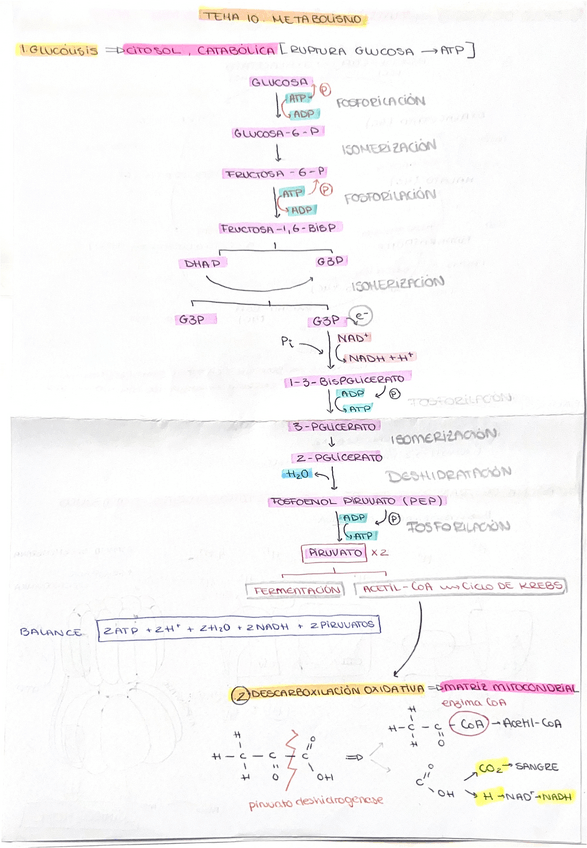 TEMA 10 METABOLISMO
1 GLUCÓLISIS ⇒ CITOSOL, CATABÓLICA [RUPTURA GLUCOSA → ATP]
GLUCOSA
ATP P
ADP FOSFORILACIÓN
GLUCOSA-6-P
ISOMERIZACIÓN
FRUCTOSA-6-P
ATP P FOSFORILACIÓN
ADP
FRUCTOSA-1,6-BISP
DHAP G3P
ISOMERIZACIÓN
G3P G3P e-
Pi NAD+
NADH + H+
1-3-BISPGLICERATO
ADP P FOSFORILACIÓN
ATP
3-PGLICERATO
ISOMERIZACIÓN
2-PGLICERATO
H2O DESHIDRATACIÓN
FOSFOENOL PIRUVATO (PEP)
ADP P FOSFORILACIÓN
ATP
PIRUVATO x2
FERMENTACIÓN ACETIL-CoA → CICLO DE KREBS
BALANCE 2ATP + 2H+ + 2H2O + 2NADH + 2PIRUVATOS
2 DESCARBOXILACIÓN OXIDATIVA ⇒ MATRIZ MITOCONDRIAL
enzima CoA
H
H - C - C - CoA → Acetil-CoA
H O
H O
H - C - C - C ⇒
H O OH
O
C CO2 → SANGRE
OH H → NAD+ → NADH
piruvato deshidrogenasa